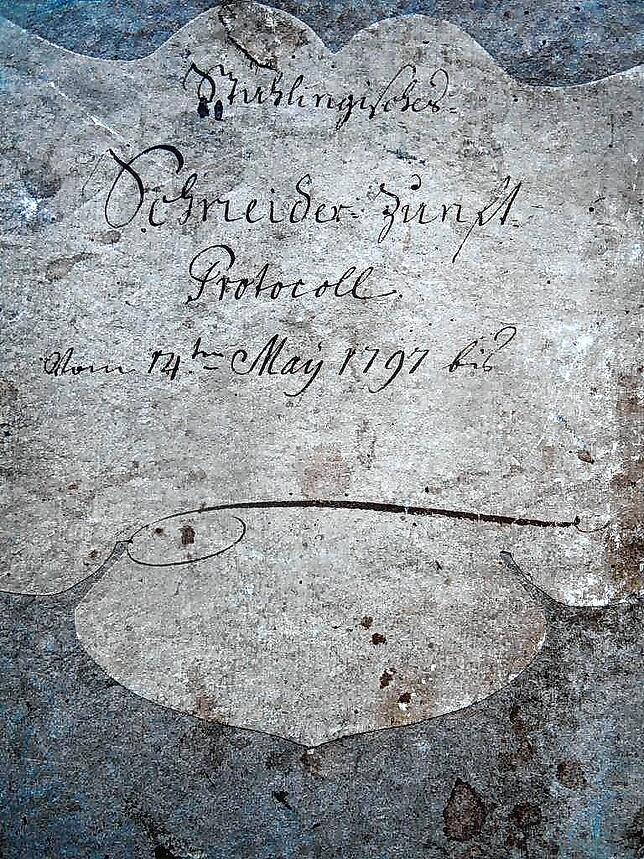 Stühlingisches
Schneider Zunft
Protocoll
Vom 14.ten Maÿ 1797 bis